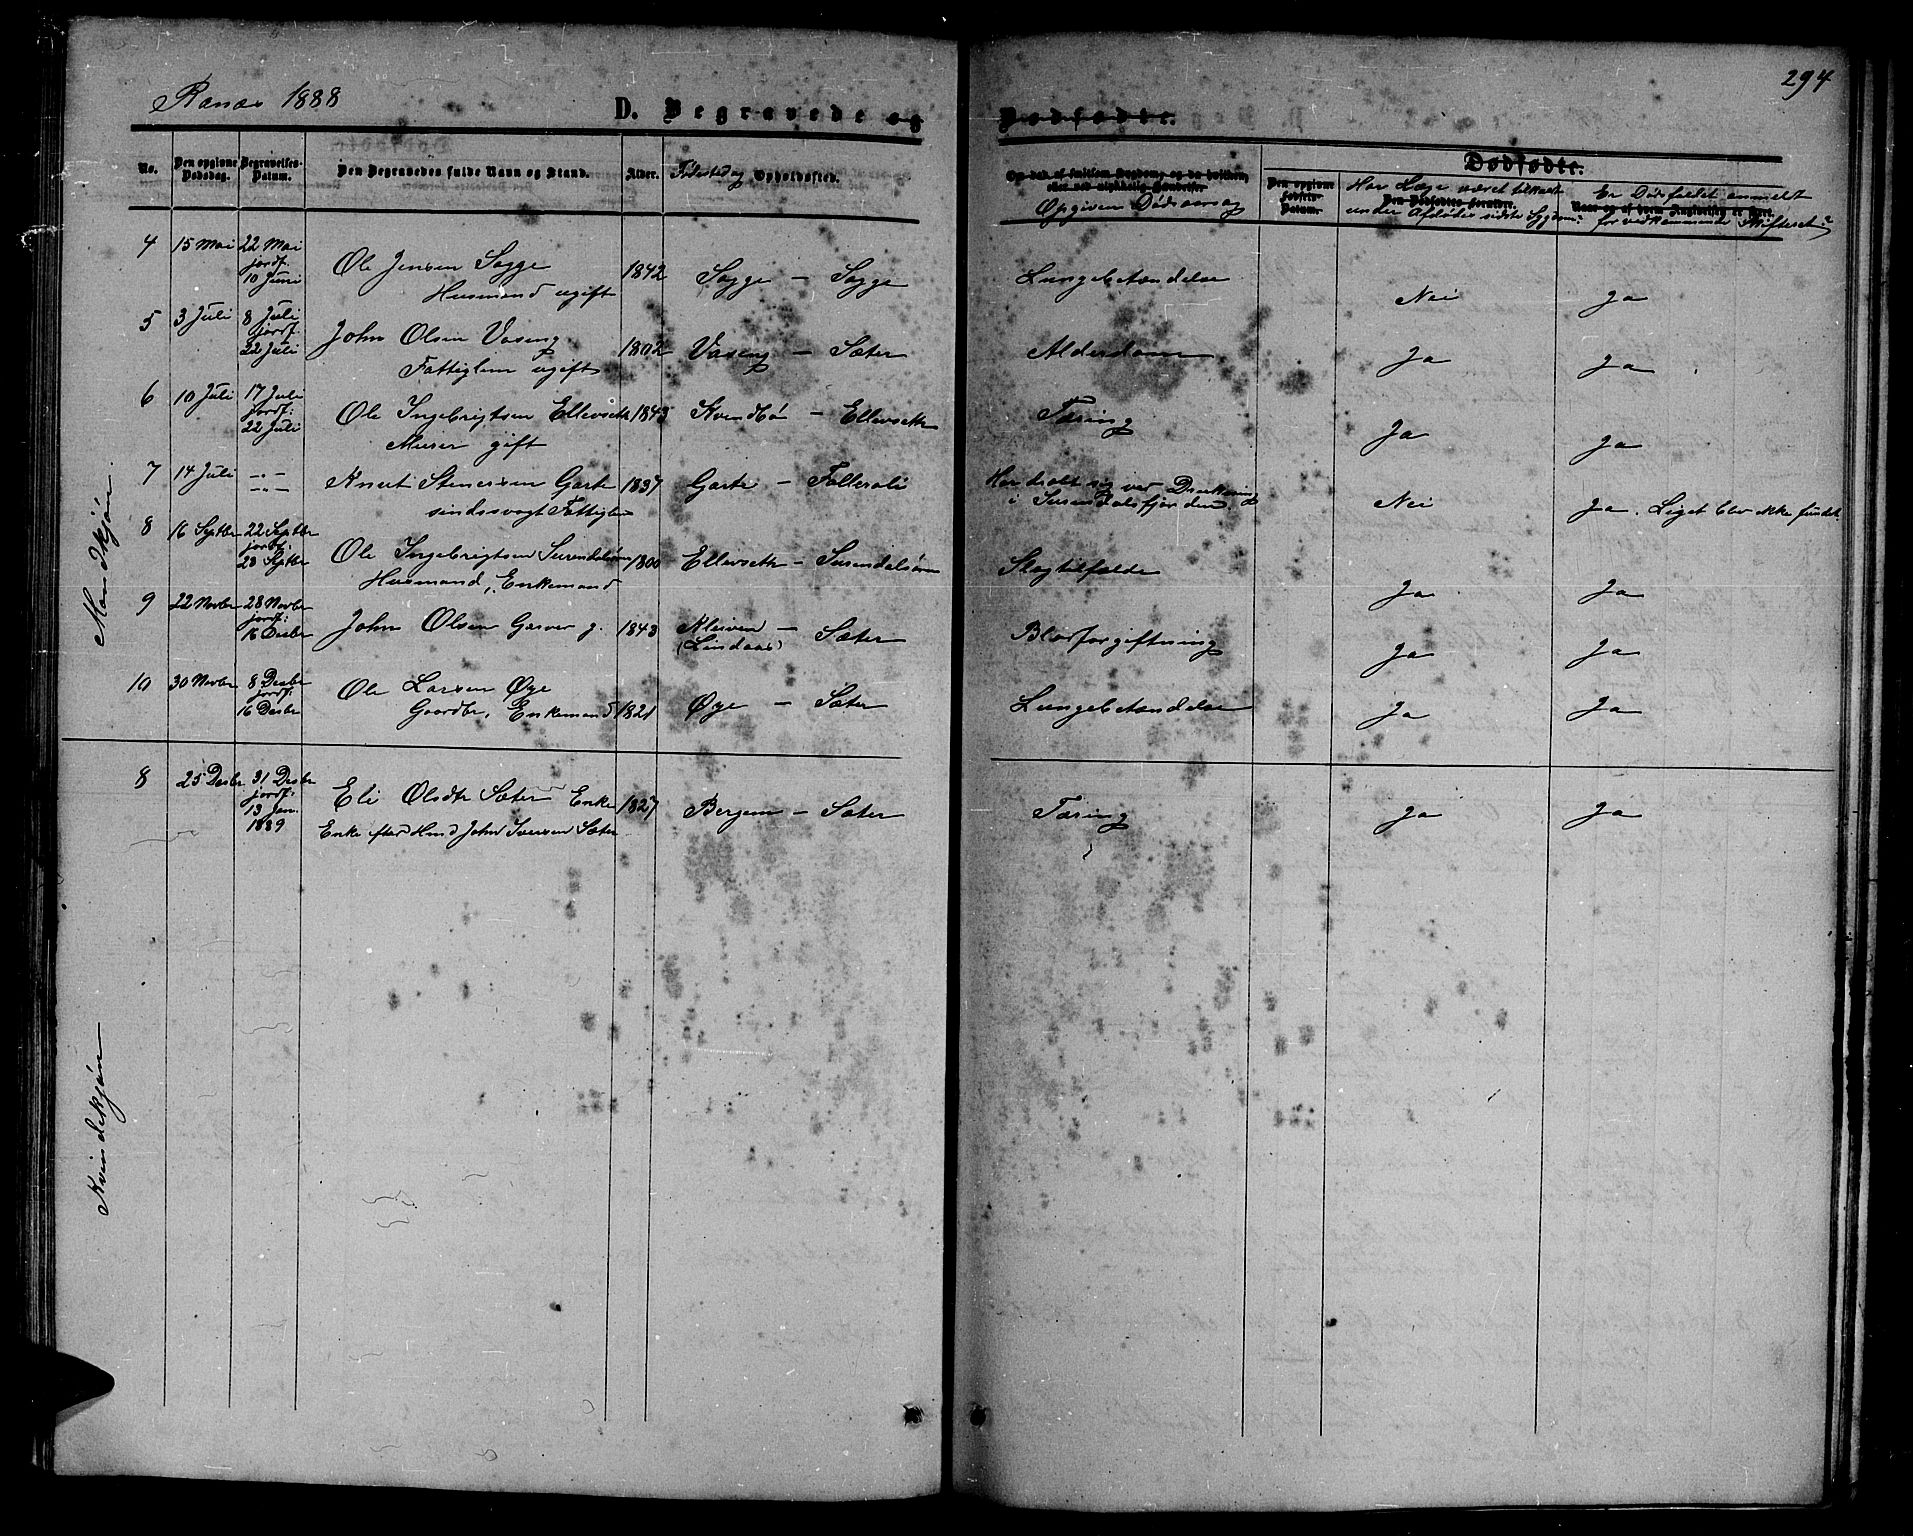 Ranæs 1888
294
D. Begravede og
Dødfødte.
No.
Den opgivne Dødsdag.
Begravelses-Datum.
Den Begravedes fulde Navn og Stand.
Alder.
Fødested og Opholdssted.
Opgiven Dødsaarsag
Den opgivne Fødsels-Datum.
Dødfødte.
Har Læge været tilkaldt
under Afdødes sidste Sygdom?
Er Dødsfaldet anmeldt
for vedkommende Skifteret?
Mandkjøn
4 15 Mai 22 Mai jordf. 10 Juni Ole Jensen Sogge 1842 Sogge - Sogge Lungebetændelse Nei Ja
Husmand ugift
5 3 Juli 8 Juli jordf. 22 Juli John Olsen Vaseng 1802 Vaseng - Sæter Alderdom Ja Ja
Fattiglem ugift
6 10 Juli 17 Juli jordf: 22 Juli Ole Ingebrigtsen Ellevseth 1843 Kvendbø - Ellevseth Tæring Ja Ja
Murer gift
7 14 Juli -"- -"- Knut Stenersen Garte 1837 Garte - Falleroli Har dræbt sig ved Drukning
sindssvagt Fattiglem i Surendalsfjorden Nei Ja. Liget blev ikke fundet.
8 16 Septbr 22 Septbr jordf: 23 Septbr Ole Ingebrigtsen Surendalsøren 1800 Ellevseth - Surendalsøren Slagtilfælde Ja Ja
Husmand, Enkemand
9 22 Novbr 28 Novbr jordf: 16 Desbr John Olsen Garver g. 1843 Kleiven (Lindaas) - Sæter Blodforgiftning Ja Ja
10 30 Novbr 8 Desbr jordf: 16 Desbr Ole Larsen Øye 1821 Øye - Sæter Lungebetændelse Ja Ja
Gaardbr, Enkemand
Kvindekjøn
8 25 Desbr 31 Desbr jordf: 13 Jan. 1889 Eli Olsdtr Sæter Enke 1827 Bergem - Sæter Tæring Ja Ja
Enke efter Hmd John Iversen Sæter